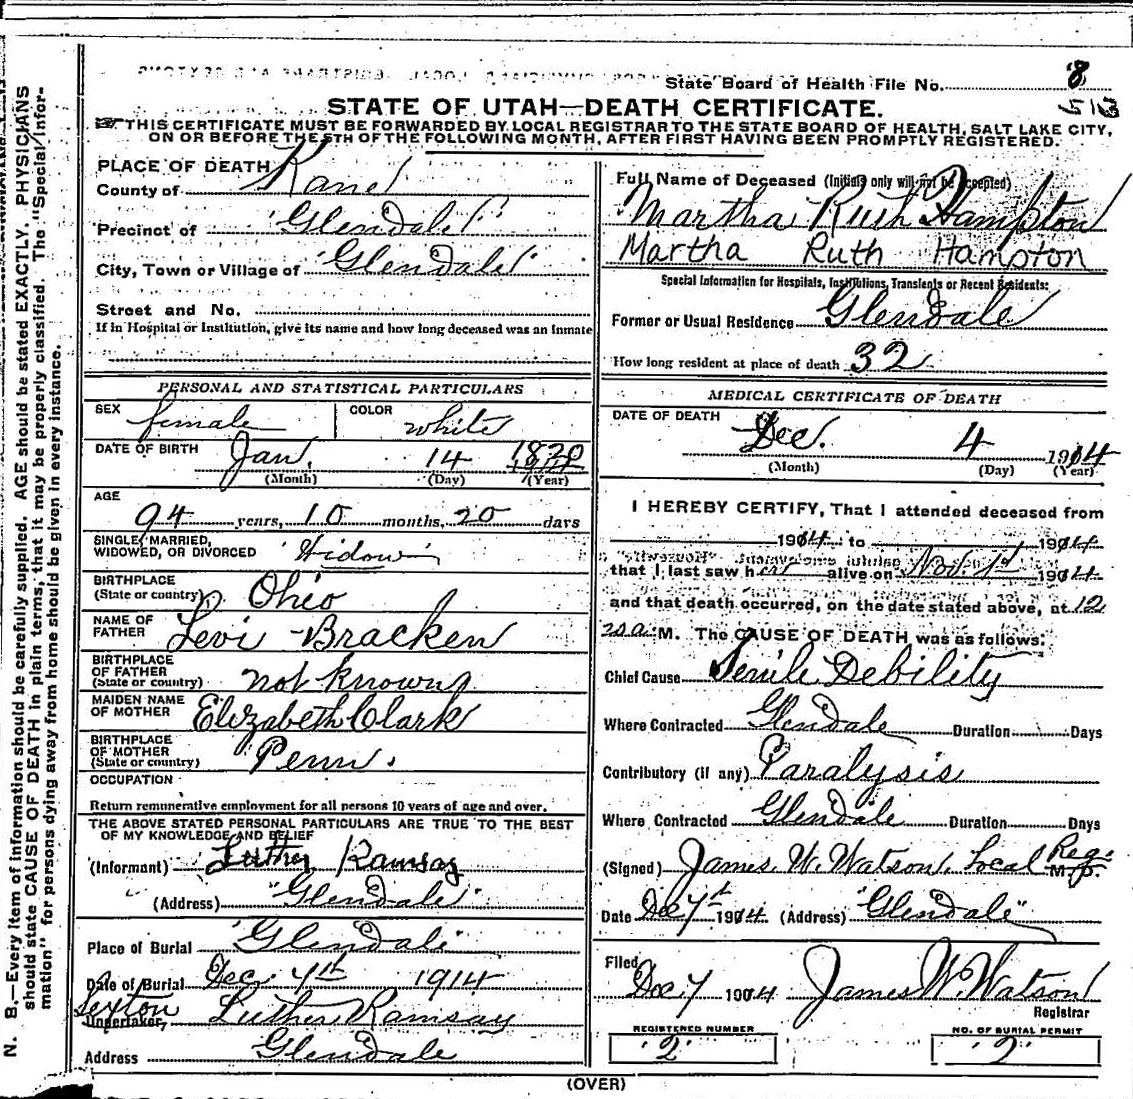 State Board of Health File No. 8
513
STATE OF UTAH—DEATH CERTIFICATE.
THIS CERTIFICATE MUST BE FORWARDED BY LOCAL REGISTRAR TO THE STATE BOARD OF HEALTH, SALT LAKE CITY,
ON OR BEFORE THE 5TH OF THE FOLLOWING MONTH, AFTER FIRST HAVING BEEN PROMPTLY REGISTERED.
N. B.—Every item of information should be carefully supplied. AGE should be stated EXACTLY. PHYSICIANS
should state CAUSE OF DEATH in plain terms, that it may be properly classified. The "Special Infor-
mation" for persons dying away from home should be given in every instance.
PLACE OF DEATH
County of Kane
Precinct of Glendale
City, Town or Village of Glendale
Street and No.
If in Hospital or Institution, give its name and how long deceased was an inmate
PERSONAL AND STATISTICAL PARTICULARS
SEX female COLOR white
DATE OF BIRTH Jan. 14 1820
(Month) (Day) (Year)
AGE
94 years, 10 months, 20 days
SINGLE, MARRIED,
WIDOWED, OR DIVORCED Widow
BIRTHPLACE
(State or country) Ohio
NAME OF
FATHER Levi Bracken
BIRTHPLACE
OF FATHER
(State or country) not known
MAIDEN NAME
OF MOTHER Elizabeth Clark
BIRTHPLACE
OF MOTHER
(State or country) Penn.
OCCUPATION
Return remunerative employment for all persons 10 years of age and over.
THE ABOVE STATED PERSONAL PARTICULARS ARE TRUE TO THE BEST
OF MY KNOWLEDGE AND BELIEF
(Informant) Luther Ramsay
(Address) "Glendale"
Place of Burial "Glendale"
Date of Burial Dec. 7th 1914
Sexton
Undertaker, Luther Ramsay
Address Glendale
Full Name of Deceased (Initials only will not be accepted)
Martha Ruth Hampton
Martha Ruth Hampton
Special Information for Hospitals, Institutions, Transients or Recent Residents:
Former or Usual Residence Glendale
How long resident at place of death 32
MEDICAL CERTIFICATE OF DEATH
DATE OF DEATH
Dec. 4 1914
(Month) (Day) (Year)
I HEREBY CERTIFY, That I attended deceased from
1914 to 1914
that I last saw her alive on Nov. 1st 1914
and that death occurred, on the date stated above, at 12
25 a. M. The CAUSE OF DEATH was as follows:
Chief Cause Senile Debility
Where Contracted Glendale Duration Days
Contributory (if any) Paralysis
Where Contracted Glendale Duration Days
(Signed) James W. Watson, Local Reg. M. D.
Date Dec 7th 1914 (Address) "Glendale"
Filed
Dec 7 1914 James W. Watson
Registrar
REGISTERED NUMBER NO. OF BURIAL PERMIT
"2" "2"
(OVER)